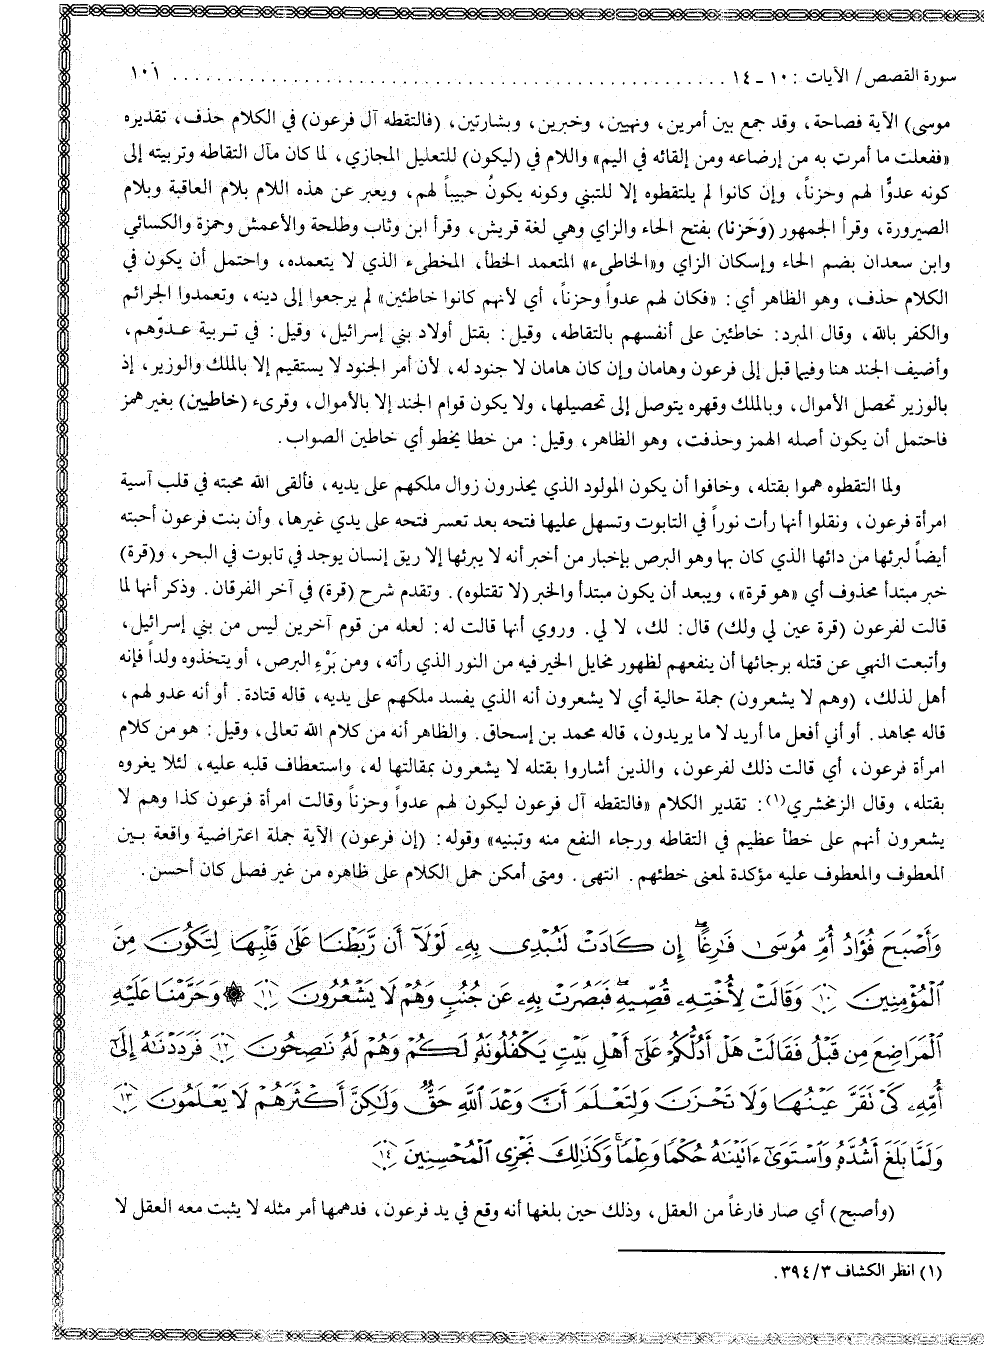 سورة القصص / الآيات : ١٠ ـ ١٤ ........................................................ ١٠١
موسى) الآية فصاحة، وقد جمع بين أمرين، ونهيين، وخبرين، وبشارتين، (فالتقطه آل فرعون) في الكلام حذف، تقديره
«ففعلت ما أمرت به من إرضاعه ومن إلقائه في اليم» واللام في (ليكون) للتعليل المجازي، لما كان مآل التقاطه وتربيته إلى
كونه عدوًّا لهم وحزناً، وإن كانوا لم يلتقطوه إلا للتبني وكونه يكونُ حبيباً لهم، ويعبر عن هذه اللام بلام العاقبة وبلام
الصيرورة، وقرأ الجمهور (وَحَزنا) بفتح الحاء والزاي وهي لغة قريش، وقرأ ابن وثاب وطلحة والأعمش وحمزة والكسائي
وابن سعدان بضم الحاء وإسكان الزاي و«الخاطىء» المتعمد الخطأ، المخطىء الذي لا يتعمده، واحتمل أن يكون في
الكلام حذف، وهو الظاهر أي : «فكان لهم عدواً وحزناً، أي لأنهم كانوا خاطئين» لم يرجعوا إلى دينه، وتعمدوا الجرائم
والكفر بالله، وقال المبرد: خاطئين على أنفسهم بالتقاطه، وقيل: بقتل أولاد بني إسرائيل، وقيل: في تربية عدوّهم،
وأضيف الجند هنا وفيما قبل إلى فرعون وهامان وإن كان هامان لا جنود له، لأن أمر الجنود لا يستقيم إلا بالملك والوزير، إذ
بالوزير تحصل الأموال، وبالملك وقهره يتوصل إلى تحصيلها، ولا يكون قوام الجند إلا بالأموال، وقرىء (خاطيين) بغير همز
فاحتمل أن يكون أصله الهمز وحذفت، وهو الظاهر، وقيل: من خطا يخطو أي خاطين الصواب.
ولما التقطوه هموا بقتله، وخافوا أن يكون المولود الذي يحذرون زوال ملكهم على يديه، فألقى الله محبته في قلب آسية
امرأة فرعون، ونقلوا أنها رأت نوراً في التابوت وتسهل عليها فتحه بعد تعسر فتحه على يدي غيرها، وأن بنت فرعون أحبته
أيضاً لبرئها من دائها الذي كان بها وهو البرص بإخبار من أخبر أنه لا يبرئها إلا ريق إنسان يوجد في تابوت في البحر، و(قرة)
خبر مبتدأ محذوف أي «هو قرة»، ويبعد أن يكون مبتدأ والخبر (لا تقتلوه). وتقدم شرح (قرة) في آخر الفرقان. وذكر أنها لما
قالت لفرعون (قرة عين لي ولك) قال: لك، لا لي. وروي أنها قالت له: لعله من قوم آخرين ليس من بني إسرائيل،
وأتبعت النهي عن قتله برجائها أن ينفعهم لظهور مخايل الخير فيه من النور الذي رأته، ومن بَرْءِ البرص، أو يتخذوه ولداً فإنه
أهل لذلك، (وهم لا يشعرون) جملة حالية أي لا يشعرون أنه الذي يفسد ملكهم على يديه، قاله قتادة. أو أنه عدو لهم،
قاله مجاهد. أو أني أفعل ما أريد لا ما يريدون، قاله محمد بن إسحاق. والظاهر أنه من كلام الله تعالى، وقيل: هو من كلام
امرأة فرعون، أي قالت ذلك لفرعون، والذين أشاروا بقتله لا يشعرون بمقالتها له، واستعطاف قلبه عليه، لئلا يغروه
بقتله، وقال الزمخشري(١): تقدير الكلام «فالتقطه آل فرعون ليكون لهم عدواً وحزناً وقالت امرأة فرعون كذا وهم لا
يشعرون أنهم على خطأ عظيم في التقاطه ورجاء النفع منه وتبنيه» وقوله: (إن فرعون) الآية جملة اعتراضية واقعة بين
المعطوف والمعطوف عليه مؤكدة لمعنى خطئهم. انتهى. ومتى أمكن حمل الكلام على ظاهره من غير فصل كان أحسن.
وَأَصْبَحَ فُؤَادُ أُمِّ مُوسَىٰ فَٰرِغًا ۖ إِن كَادَتْ لَتُبْدِى بِهِۦ لَوْلَآ أَن رَّبَطْنَا عَلَىٰ قَلْبِهَا لِتَكُونَ مِنَ
ٱلْمُؤْمِنِينَ ۝١٠ وَقَالَتْ لِأُخْتِهِۦ قُصِّيهِ ۖ فَبَصُرَتْ بِهِۦ عَن جُنُبٍ وَهُمْ لَا يَشْعُرُونَ ۝١١ ۞ وَحَرَّمْنَا عَلَيْهِ
ٱلْمَرَاضِعَ مِن قَبْلُ فَقَالَتْ هَلْ أَدُلُّكُمْ عَلَىٰٓ أَهْلِ بَيْتٍ يَكْفُلُونَهُۥ لَكُمْ وَهُمْ لَهُۥ نَٰصِحُونَ ۝١٢ فَرَدَدْنَٰهُ إِلَىٰٓ
أُمِّهِۦ كَىْ تَقَرَّ عَيْنُهَا وَلَا تَحْزَنَ وَلِتَعْلَمَ أَنَّ وَعْدَ ٱللَّهِ حَقٌّ وَلَٰكِنَّ أَكْثَرَهُمْ لَا يَعْلَمُونَ ۝١٣
وَلَمَّا بَلَغَ أَشُدَّهُۥ وَٱسْتَوَىٰٓ ءَاتَيْنَٰهُ حُكْمًا وَعِلْمًا ۚ وَكَذَٰلِكَ نَجْزِى ٱلْمُحْسِنِينَ ۝١٤
(وأصبح) أي صار فارغاً من العقل، وذلك حين بلغها أنه وقع في يد فرعون، فدهمها أمر مثله لا يثبت معه العقل لا
(١) انظر الكشاف ٣/ ٣٩٤.